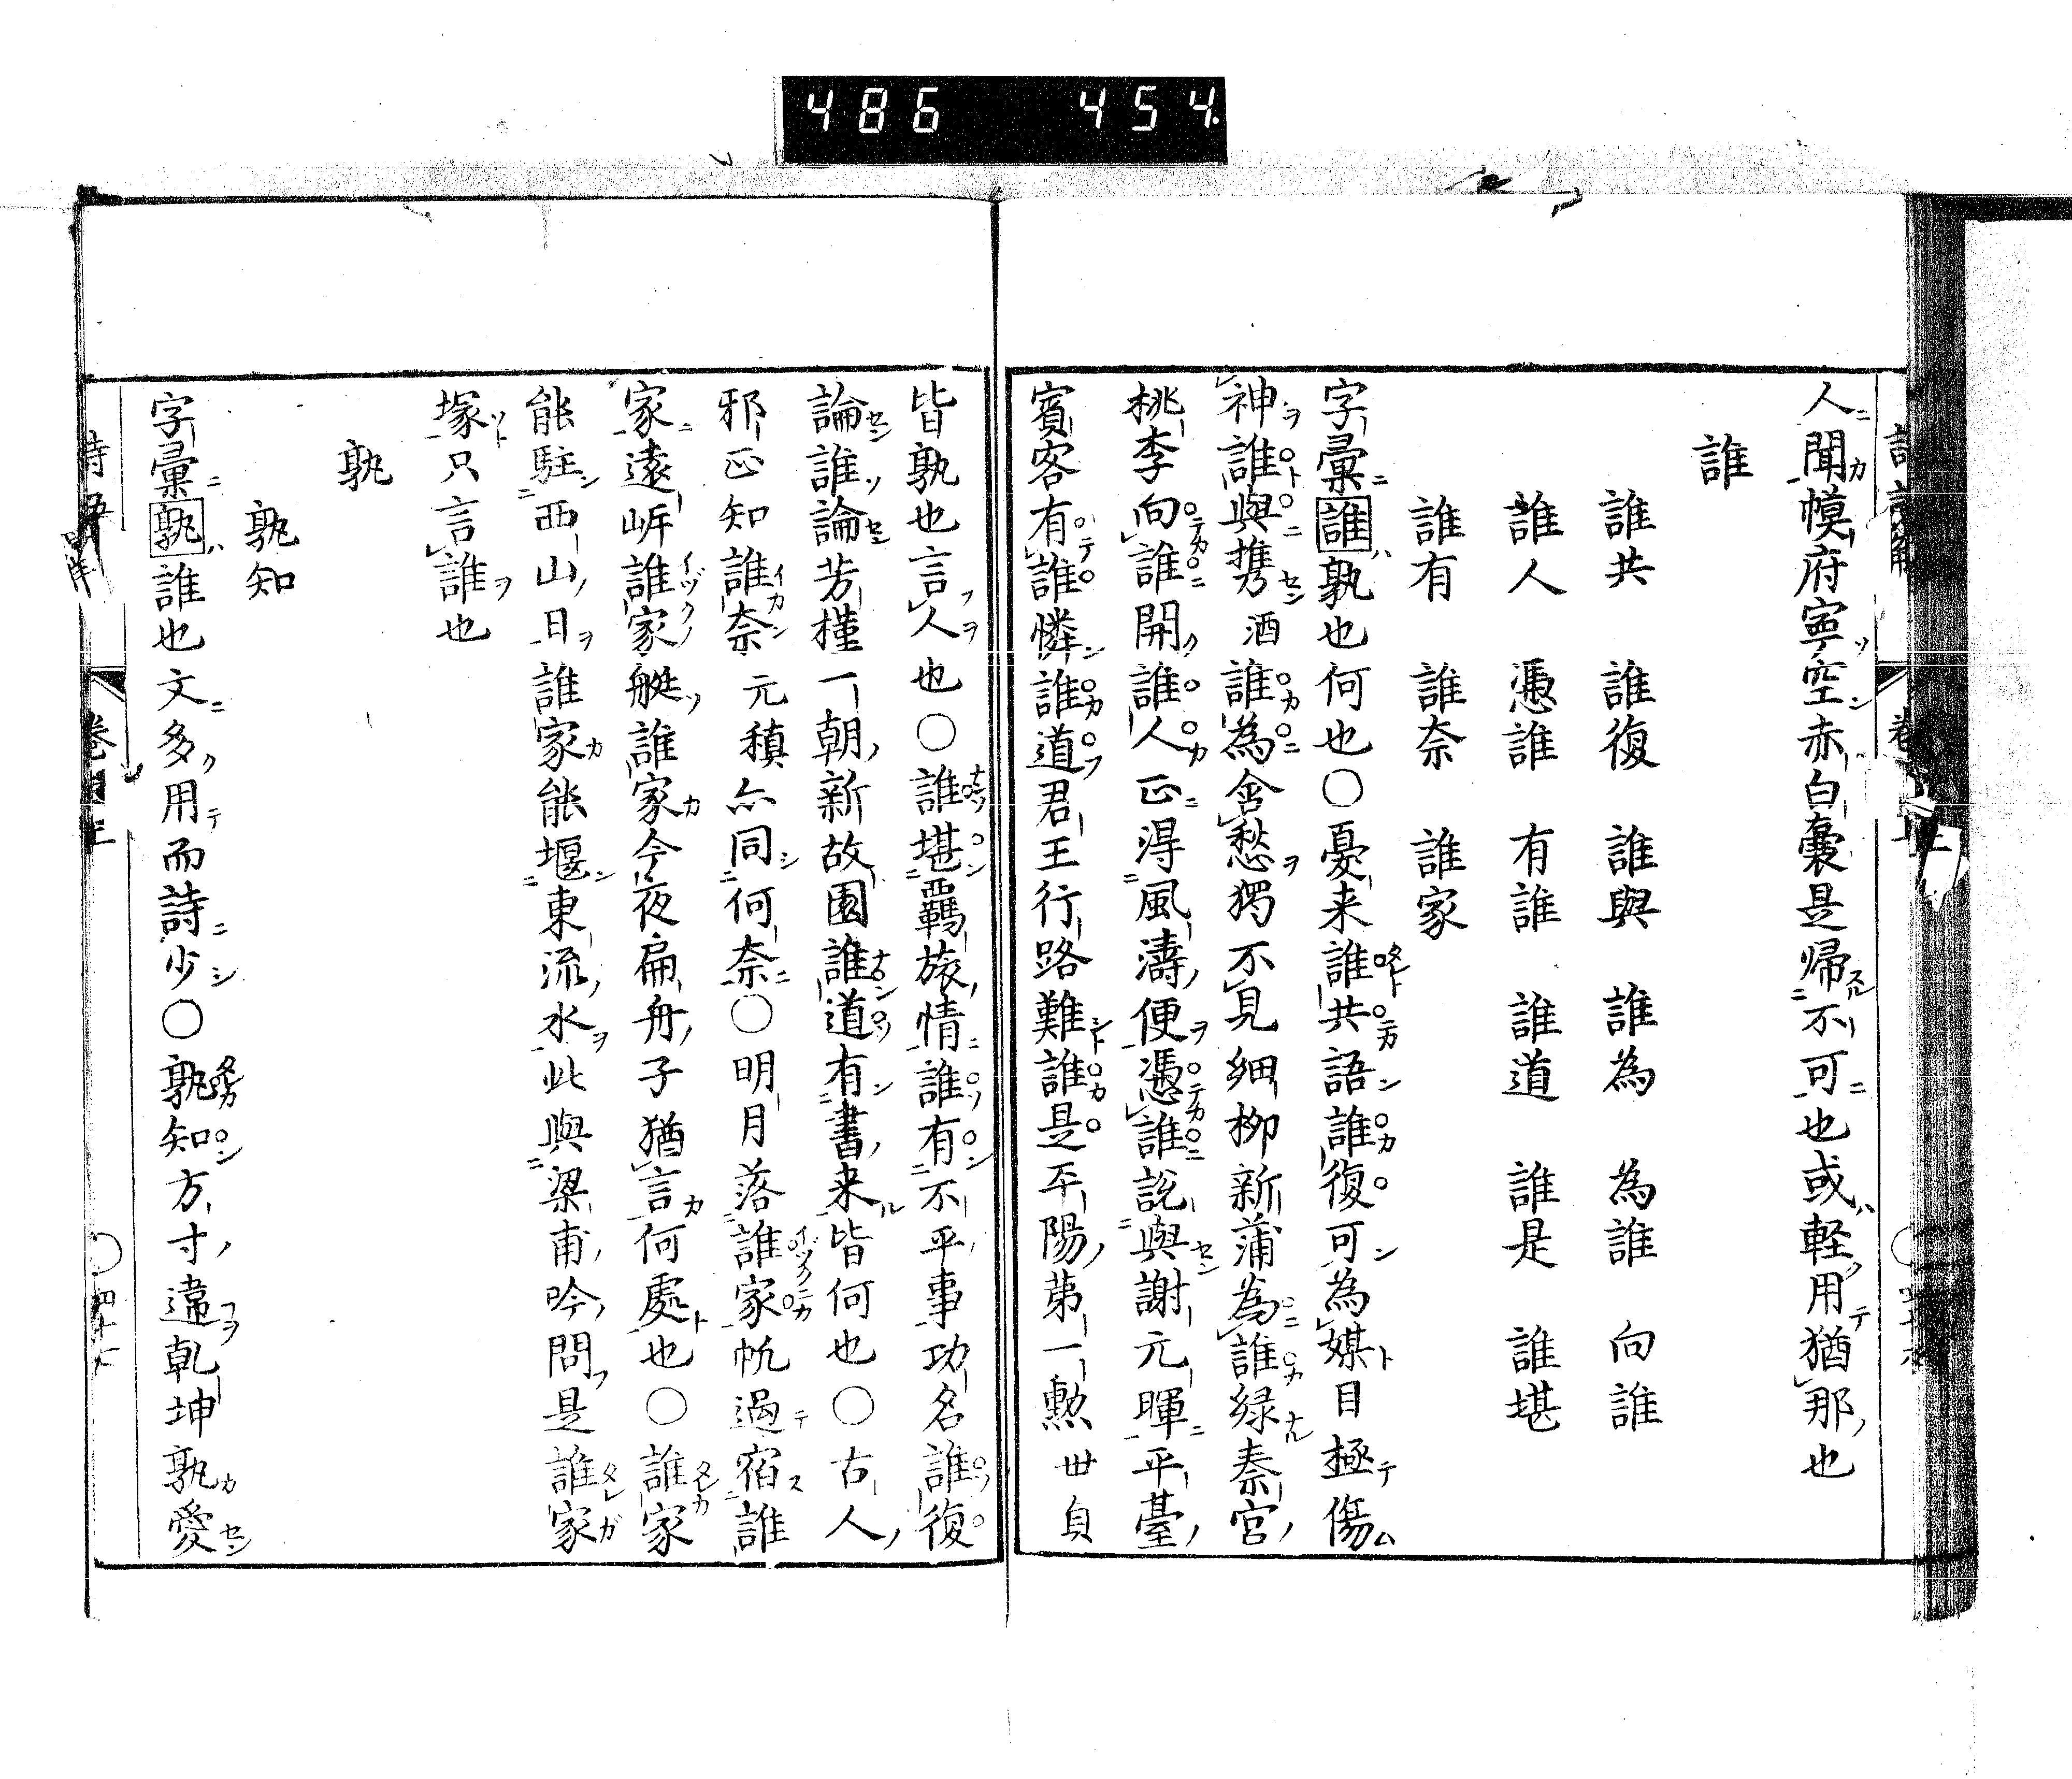 486 454.
人聞幙府寧空赤白囊是帰不可也或軽用猶那也
誰
誰共 誰復 誰與 誰為 為誰 向誰
誰人 憑誰 有誰 誰道 誰是 誰堪
誰有 誰奈 誰家
字彙誰孰也何也○憂来誰共語誰復可為媒目極傷
神誰與携酒誰為含愁獨不見細柳新蒲為誰緑秦宮
桃李向誰開誰人正得風濤便憑誰説與謝元暉平臺
賓客有誰憐誰道君王行路難誰是平陽第一勲世貞
皆孰也言人也○誰堪羈旅情誰有不平事功名誰復
論誰論芳槿一朝新故園誰道有書来皆何也○古人
邪正知誰奈元稹亦同何奈○明月落誰家帆過宿誰
家遠岍誰家艇誰家今夜扁舟子猶言何處也○誰家
能駐西山日誰家能堰東流水此與梁甫吟問是誰家
塚只言誰也
孰
孰知
字彙孰誰也文多用而詩少○孰知方寸違乾坤孰愛